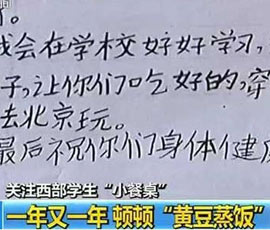 。
我会在学校好好学习,
子,让你们吃好的,穿
去北京玩。
最后祝你们身体健康
关注西部学生“小餐桌”
一年又一年 顿顿“黄豆蒸饭”